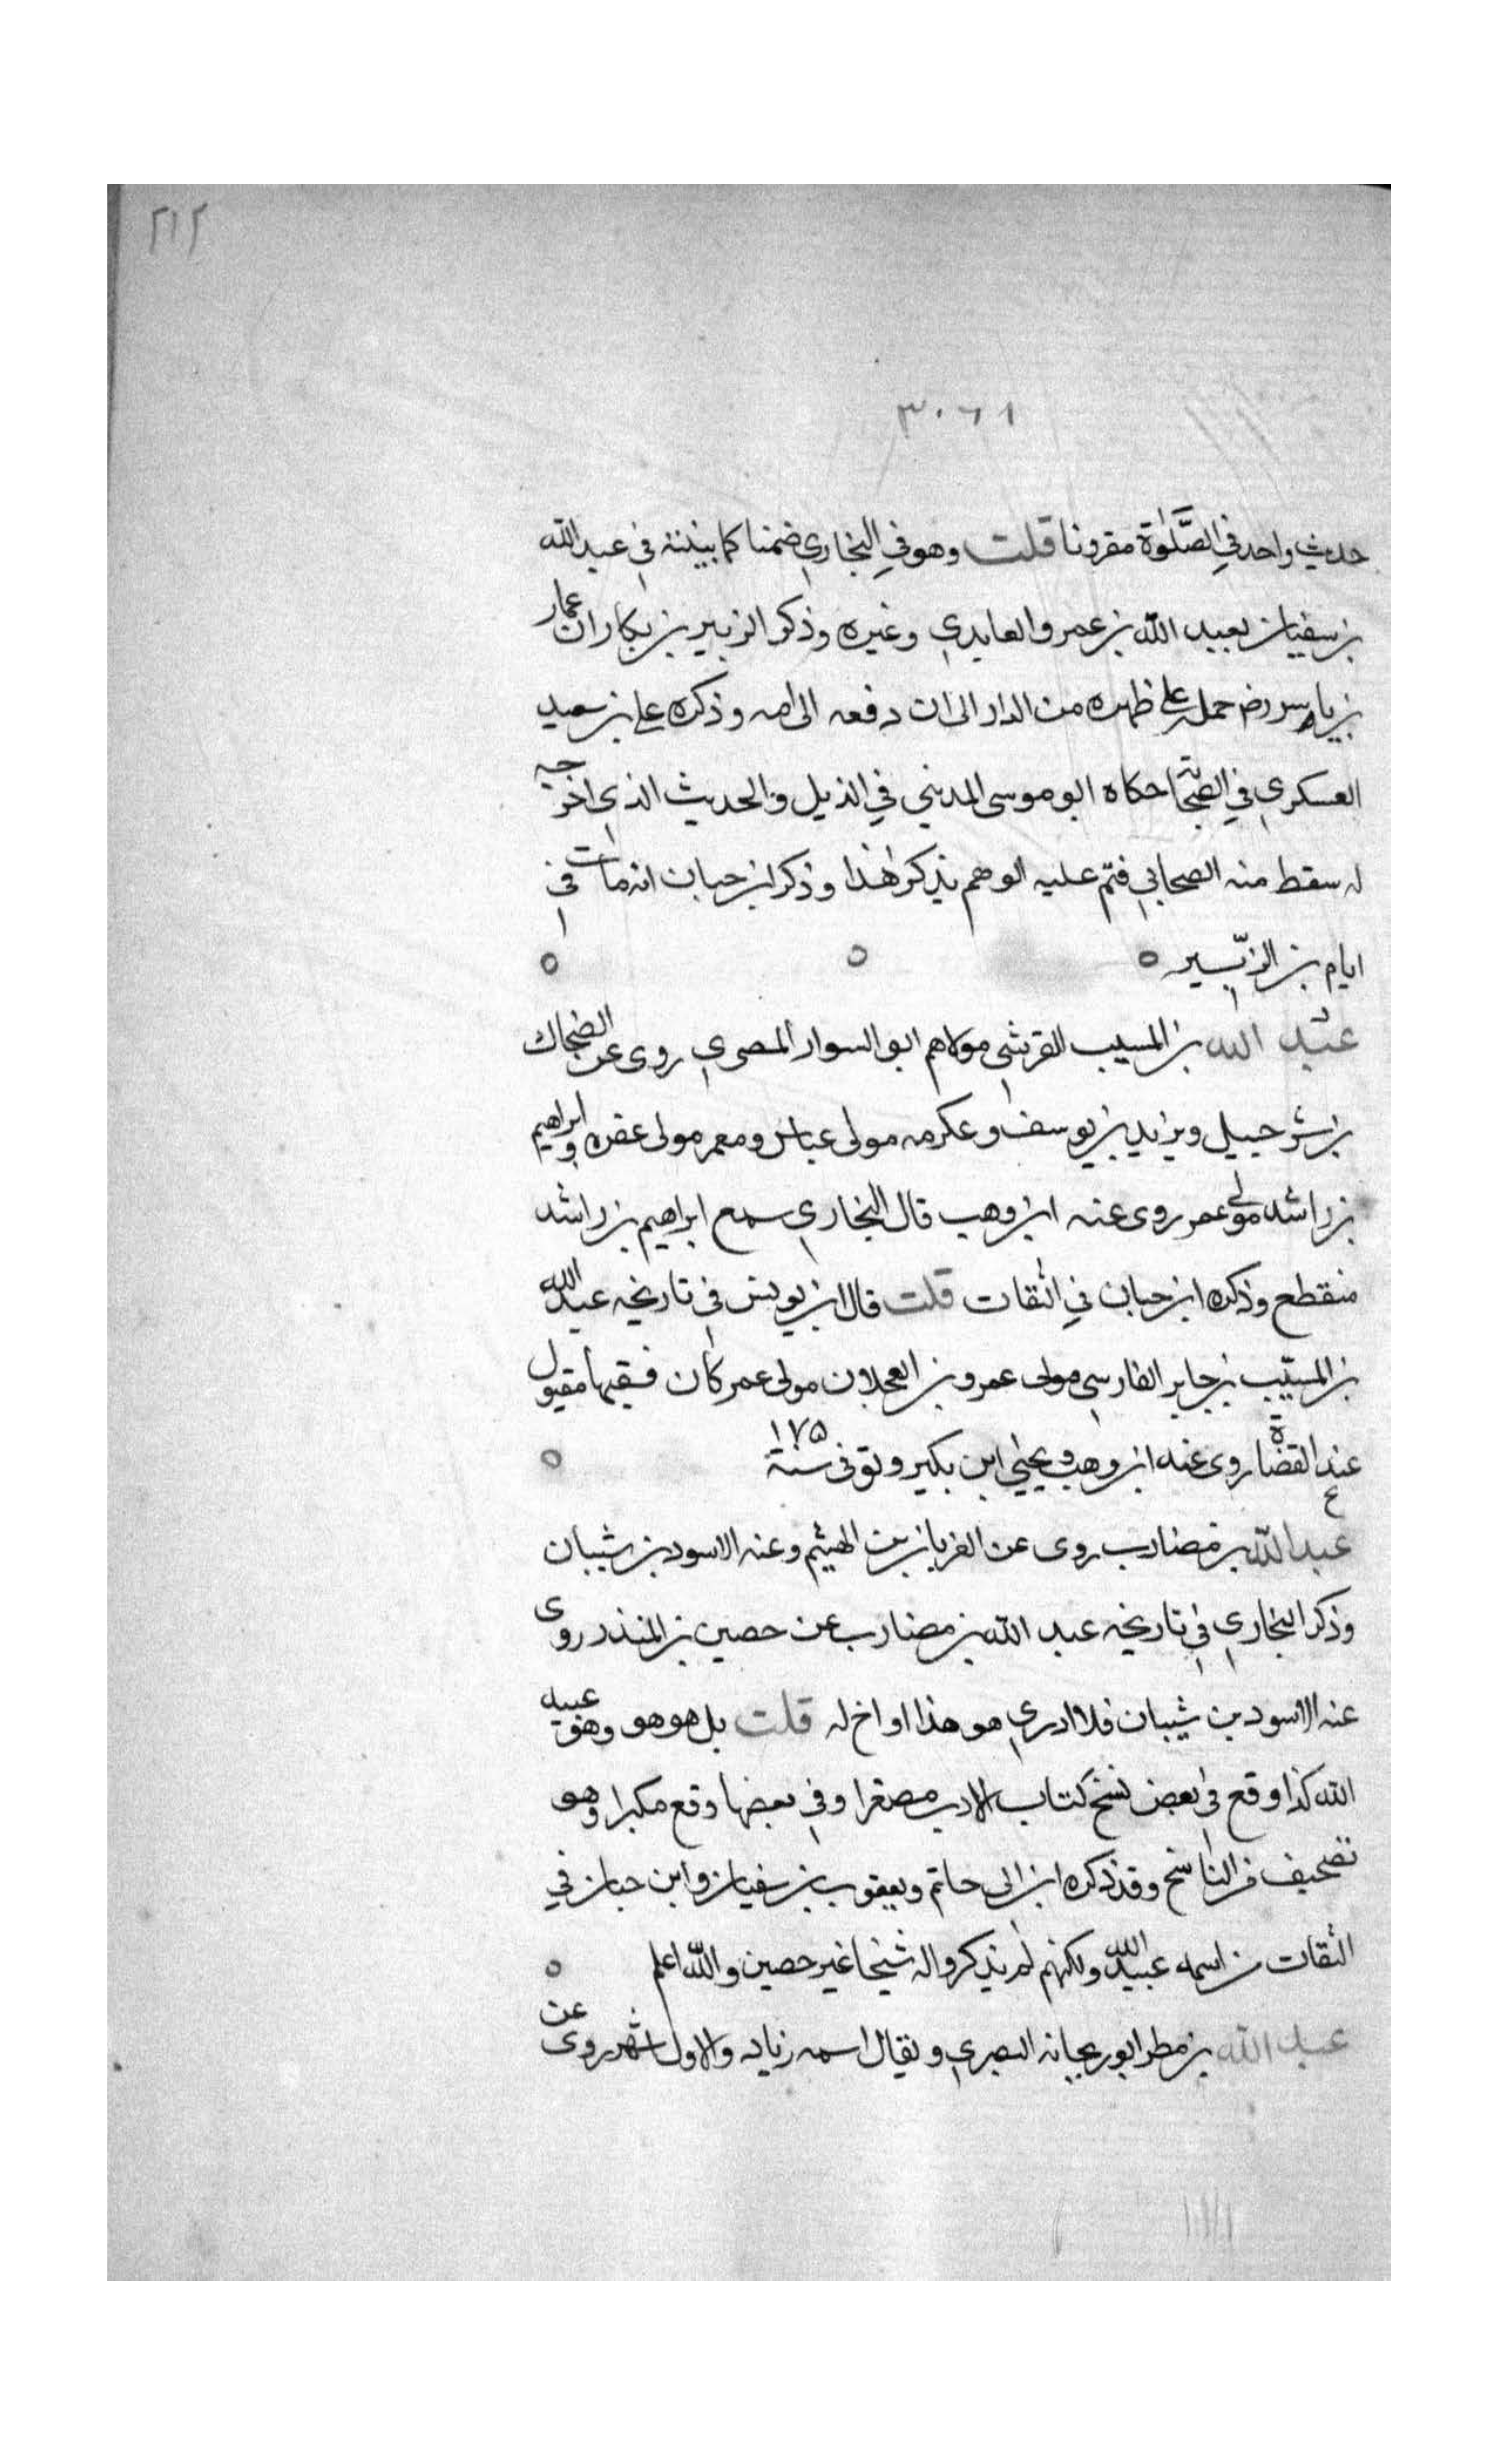 ٢١٢
٣٠٦١
حديث واحد في الصَّلوٰة مقرونا قلت وهو في البخاري ضمنا كما بينته في عبد الله
بن سفيان بعبيد الله بن عمرو العابدي وغيره وذكر الزبير بن بكار ان عمار
بن ياسر رضـ حمله على ظهره من الدار الى ان دفعه الى امه وذكره علي بن سعيد
العسكري في الصحابة حكاه ابو موسى المديني في الذيل والحديث الذي اخرجه
له سقط منه الصحابي فتم عليه الوهم بذكر هٰذا وذكر ابن حبان انه مات في
ايام بن الزبّير
عبد الله بن المسيب القرشي مولاهم ابو السوار المصري روى عن الضحاك
بن شرحبيل ويزيد بن يوسف وعكرمه مولى عباس ومعمر مولى عفره وابراهيم
بن راشد مولى عمر روى عنه ابن وهب قال البخاري سمع ابراهيم بن راشد
منقطع وذكره ابن حبان في الثقات قلت قال ابن يونس في تاريخه عبد الله
بن المسيّب بن جابر الفارسي مولى عمرو بن العجلان مولى عمر كان فقيها مقبول
عند القضاة روى عنه ابن وهب ويحيٰي ابن بكير وتوفى سنة ١٧٥
عبد الله بن مضارب روى عن العريان بن الهيثم وعنه الاسود بن شيبان
وذكر البخاري في تاريخه عبد الله بن مضارب عن حصين بن المنذر روى
عنه الاسود بن شيبان فلا ادري هو هذا او اخ له قلت بل هو هو وهو عبيد
الله كذا وقع في بعض نسخ كتاب الادب مصغرا وفي بعضها وقع مكبرا وهو
تصحيف من الناسخ وقد ذكره ابن ابى حاتم ويعقوب بن سفيان وابن حبان في
الثقات من اسمه عبيد الله ولكنهم لم يذكروا له شيخا غير حصين والله اعلم
عبد الله بن مطر ابو ريحانه البصري ويقال اسمه زياد والاول اشهر روى عن